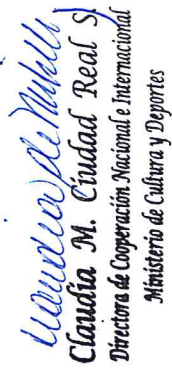 Claudia M. Ciudad Real S.
Directora de Cooperación Nacional e Internacional
Ministerio de Cultura y Deportes